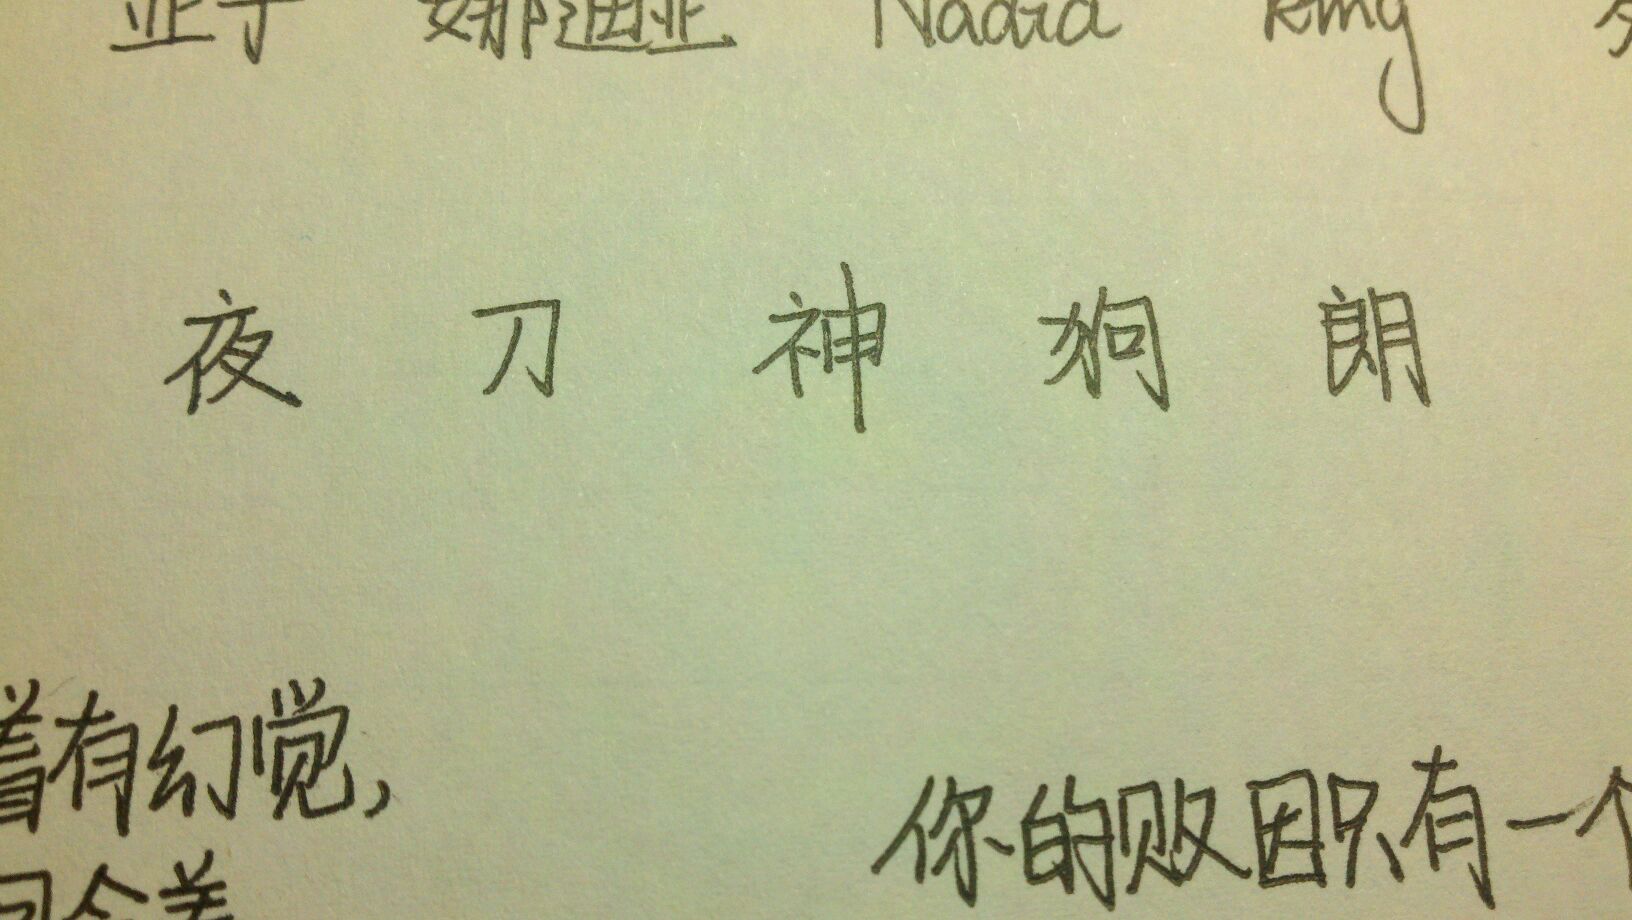 娜迪亚 Nadia king
夜刀神狗朗
着有幻觉,
你的败因只有一个